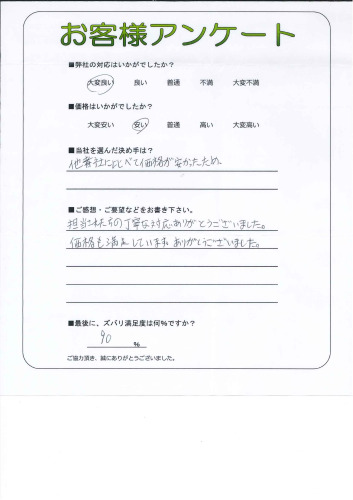 お客様アンケート
■弊社の対応はいかがでしたか？
大変良い 良い 普通 不満 大変不満
■価格はいかがでしたか？
大変安い 安い 普通 高い 大変高い
■当社を選んだ決め手は？
他業社に比べて価格が安かったため
■ご感想・ご要望などをお書き下さい。
担当 の丁寧な対応ありがとうございました。
価格も満足しています。ありがとうございました。
■最後に、ズバリ満足度は何％ですか？
90 ％
ご協力頂き、誠にありがとうございました。